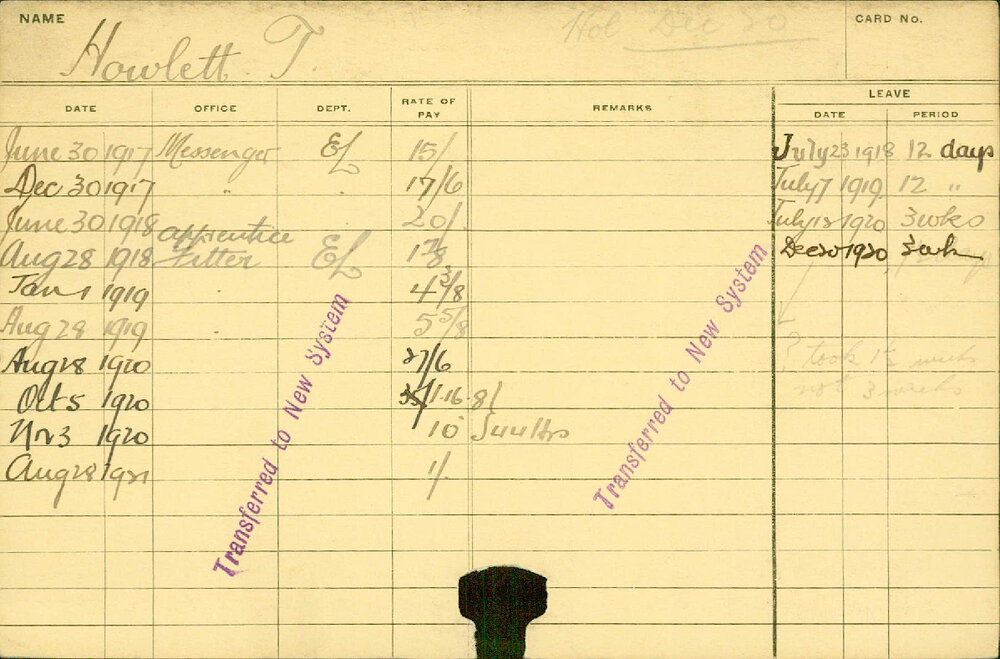 NAME Howlett. T. Hol Dec 20 CARD No.
DATE OFFICE DEPT. RATE OF PAY REMARKS LEAVE
DATE PERIOD
June 30 1917 Messenger EL 15/ July 23 1918 12 days
Dec 30 1917 " " 17/6 July 7 1919 12 "
June 30 1918 20/ 1920 3 wks
Aug 28 1918 apprentice Fitter EL Dec 20 1920 3 wk
Jan 1 1919 " 4 3/8
Aug 28 1919 " 5 5/8
Aug 28 1920 27/6
? took 1½ weeks
not 3 weeks
Oct 5 1920 1.16.8
Nov 3 1920 10
Aug 28 1921 1/
Transferred to New System
Transferred to New System